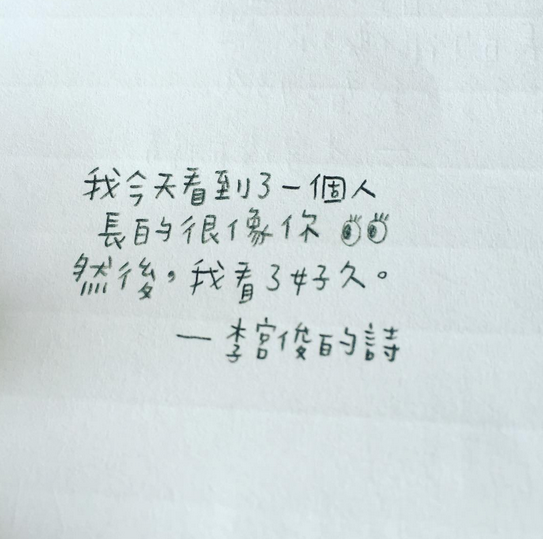 我今天看到了一個人
長的很像你
然後，我看了好久。
— 李宮俊的詩